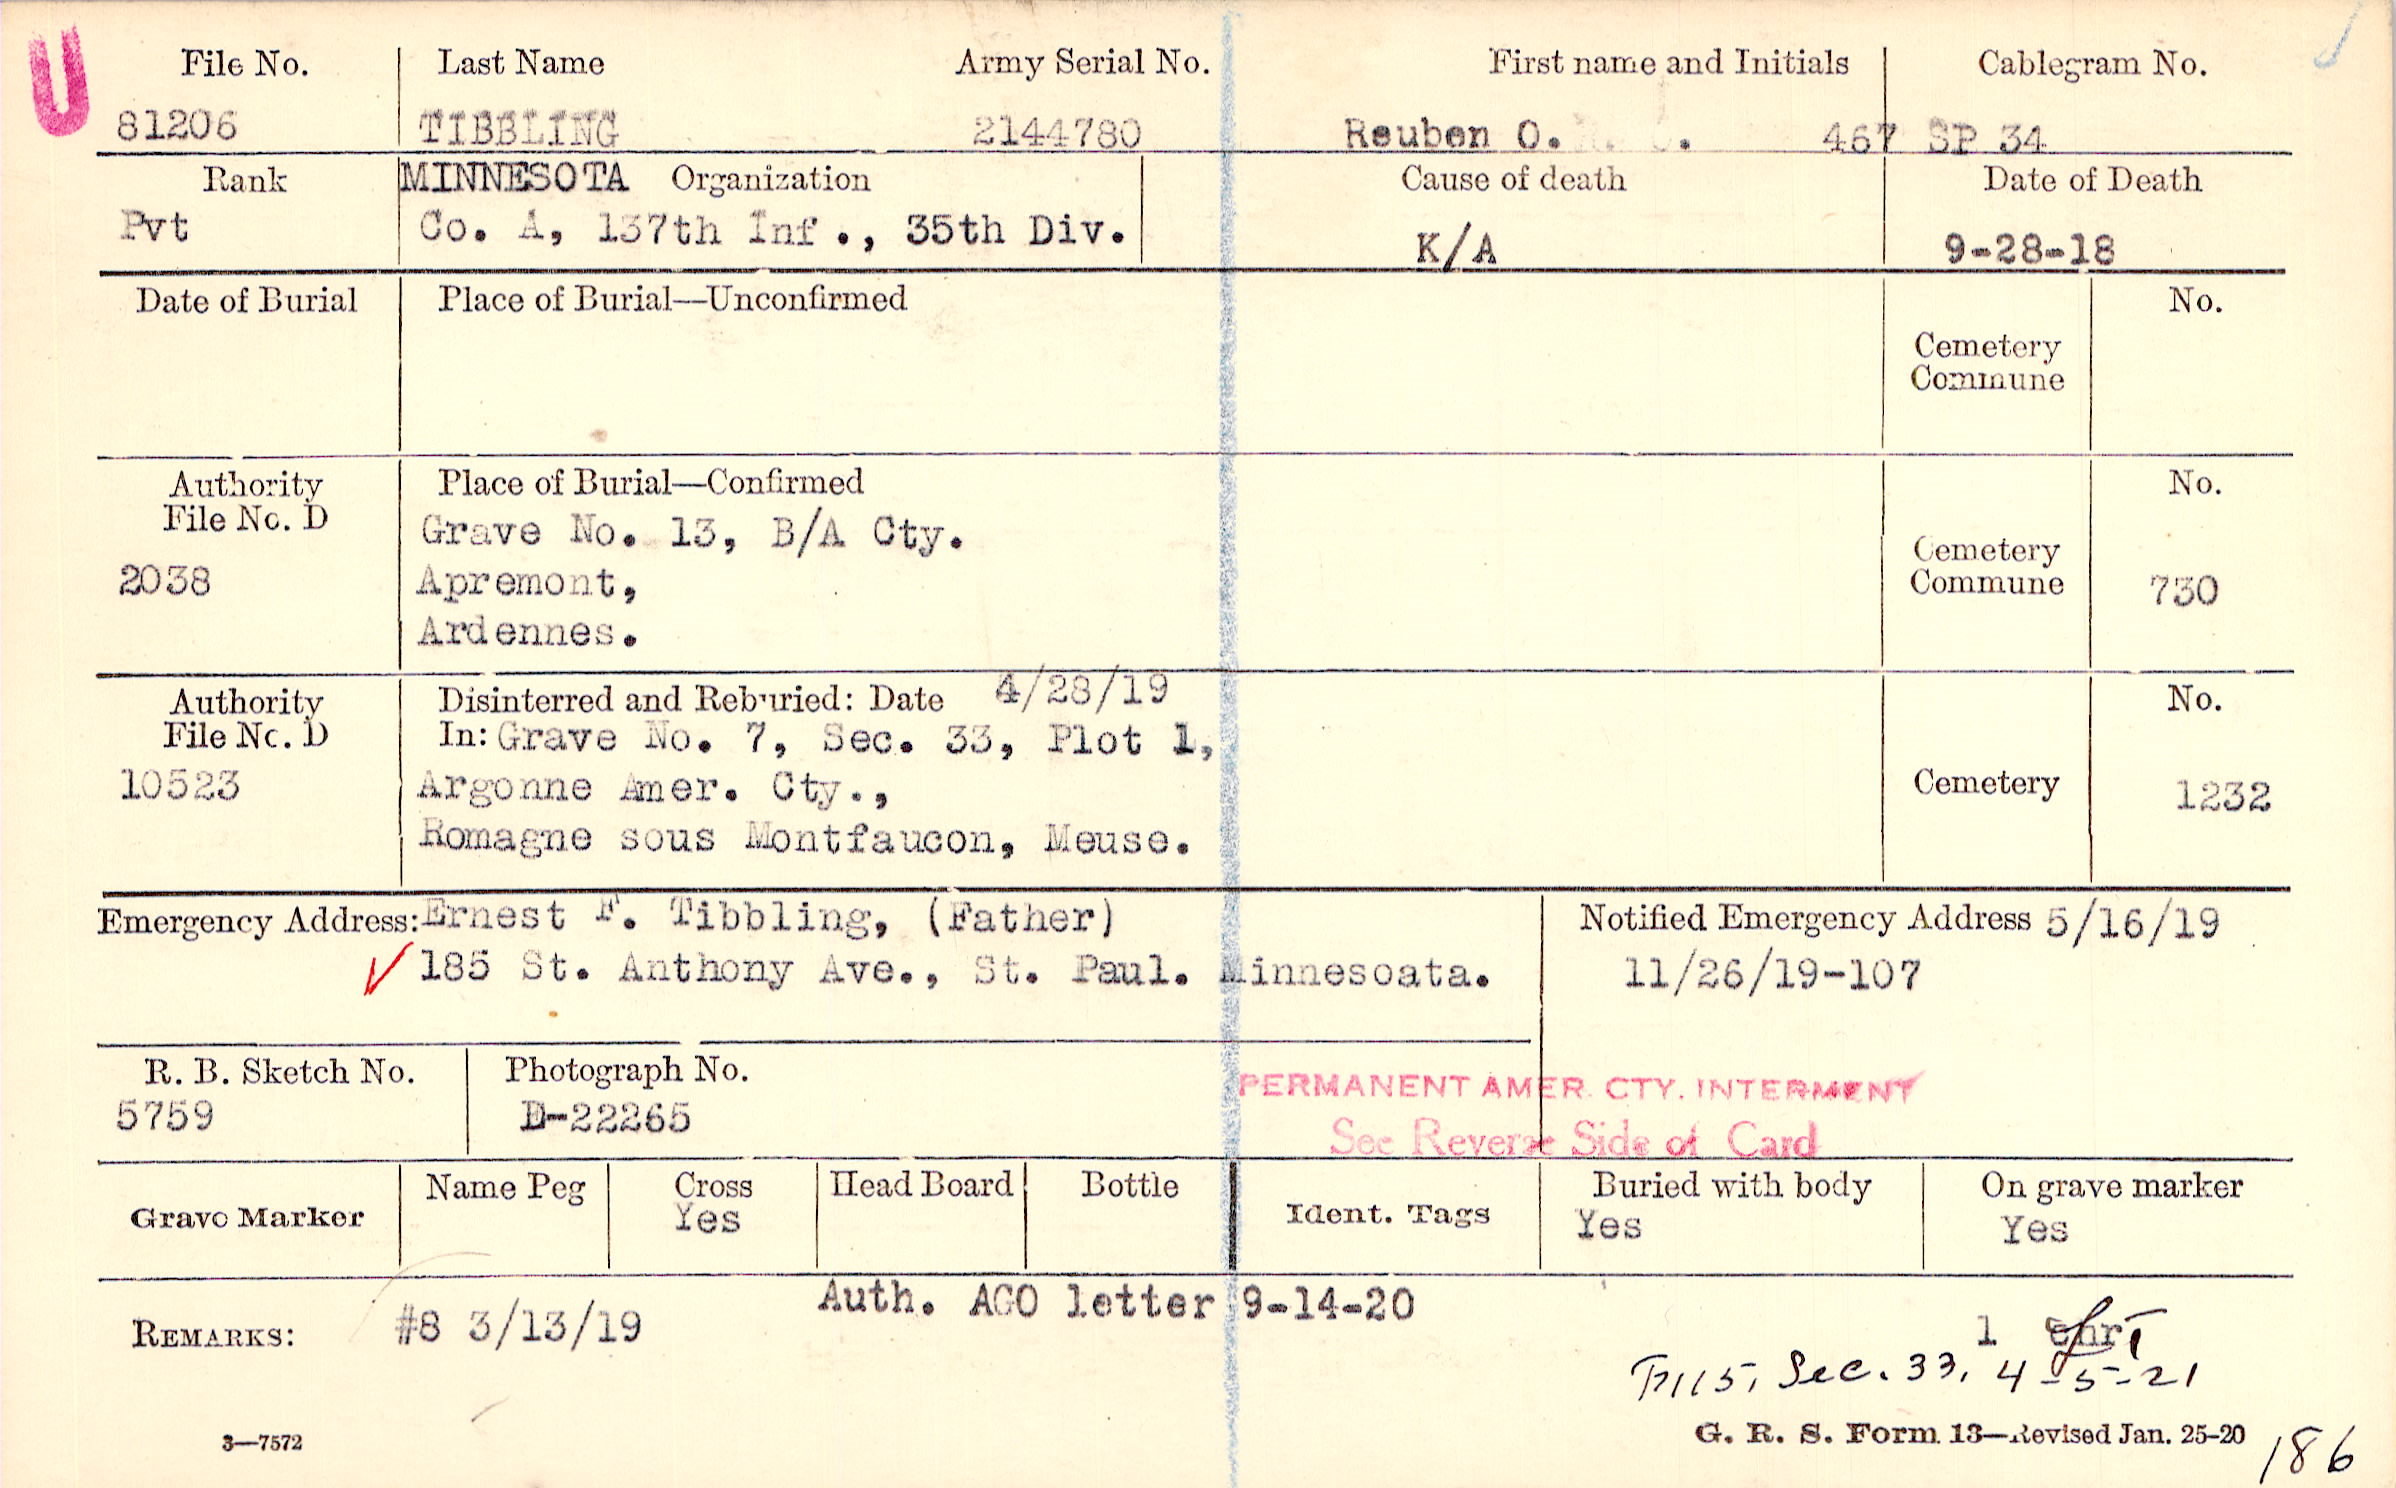 U
File No. Last Name Army Serial No. First name and Initials Cablegram No.
81206 TIBBLING 2144780 Reuben O. 467 SP 34
Rank MINNESOTA Organization Cause of death Date of Death
Pvt Co. A, 137th Inf., 35th Div. K/A 9-28-18
Date of Burial Place of Burial—Unconfirmed No.
Cemetery
Commune
Authority Place of Burial—Confirmed No.
File No. D
Grave No. 13, B/A Cty.
Cemetery
2038 Apremont, Commune 730
Ardennes.
Authority Disinterred and Reburied: Date 4/28/19 No.
File No. D In: Grave No. 7, Sec. 33, Plot 1,
10523 Argonne Amer. Cty., Cemetery 1232
Romagne sous Montfaucon, Meuse.
Emergency Address: Ernest F. Tibbling, (Father) Notified Emergency Address 5/16/19
185 St. Anthony Ave., St. Paul. Minnesoata. 11/26/19-107
R. B. Sketch No. Photograph No.
PERMANENT AMER. CTY. INTERMENT
5759 D-22265
See Reverse Side of Card
Name Peg Cross Head Board Bottle Buried with body On grave marker
Grave Marker Yes Ident. Tags Yes Yes
Auth. AGO letter 9-14-20
REMARKS: #8 3/13/19 1
Sec. 33, 4-5-21
3—7572 G. R. S. Form 13—Revised Jan. 25-20
186